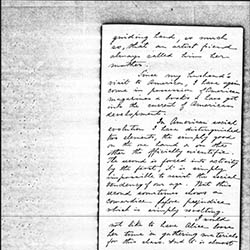 guiding hand, so much
so, that an artist friend
always called him her
mother.
Since my husband's
visit to America, I have again
come in possession of American
magazines & books & have got
into the current of American
development.
In American social
evolution I have distinguished
two elements, the simply good
on the one hand & on the
other the officially scientific.
The second is forced into activity
by the first, it is simply
impossible to resist the social
tendency of our age. But this
second sometimes shows a
cowardice before prejudice
which is simply revolting.
I would
not like to have Alice lose
her time in gathering materials
for this class. but it is almost